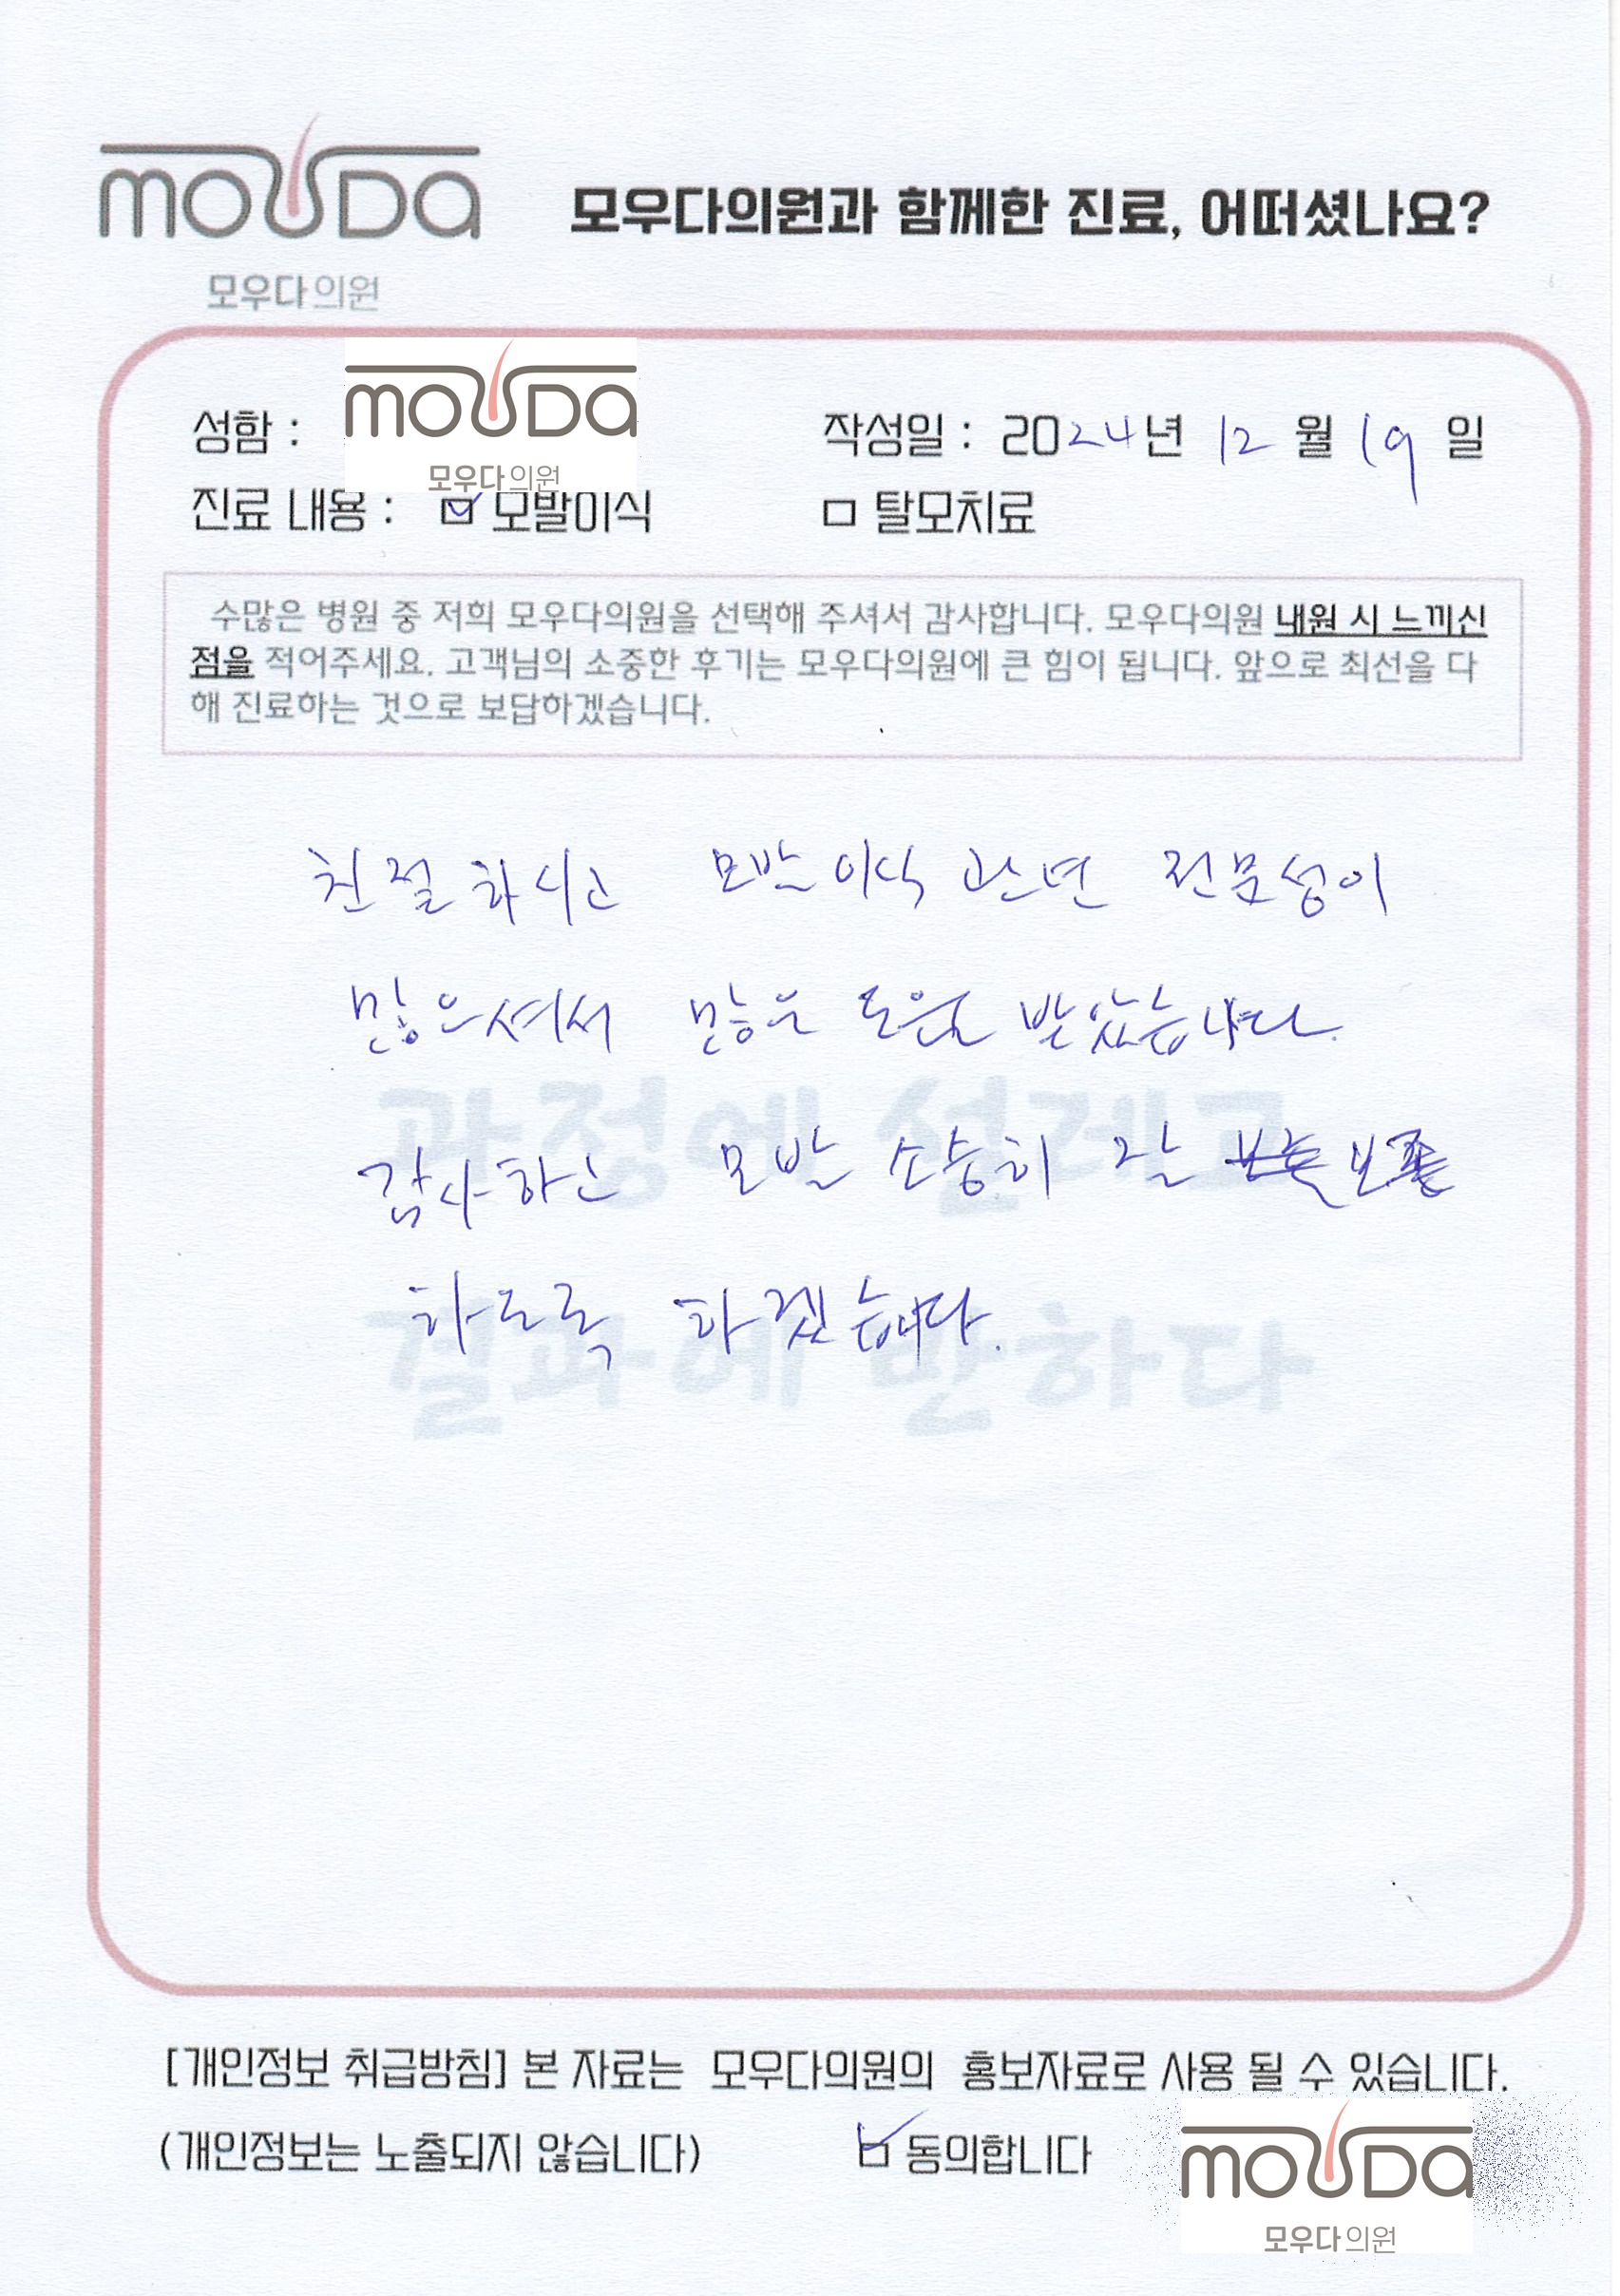 mouDa
모우다의원
모우다의원과 함께한 진료, 어떠셨나요?
mouDa
모우다의원
성함 :
작성일 : 2024년 12월 19일
진료 내용 : ☑ 모발이식 □ 탈모치료
수많은 병원 중 저희 모우다의원을 선택해 주셔서 감사합니다. 모우다의원 내원 시 느끼신
점을 적어주세요. 고객님의 소중한 후기는 모우다의원에 큰 힘이 됩니다. 앞으로 최선을 다
해 진료하는 것으로 보답하겠습니다.
친절하시고 모발이식 관련 전문성이
많으셔서 많은 도움 받았습니다.
과정에 설레고
감사하고 모발 소중히 잘
결과에 반하다
하도록 하겠습니다.
[개인정보 취급방침] 본 자료는 모우다의원의 홍보자료로 사용 될 수 있습니다.
(개인정보는 노출되지 않습니다) ☑ 동의합니다
mouDa
모우다의원